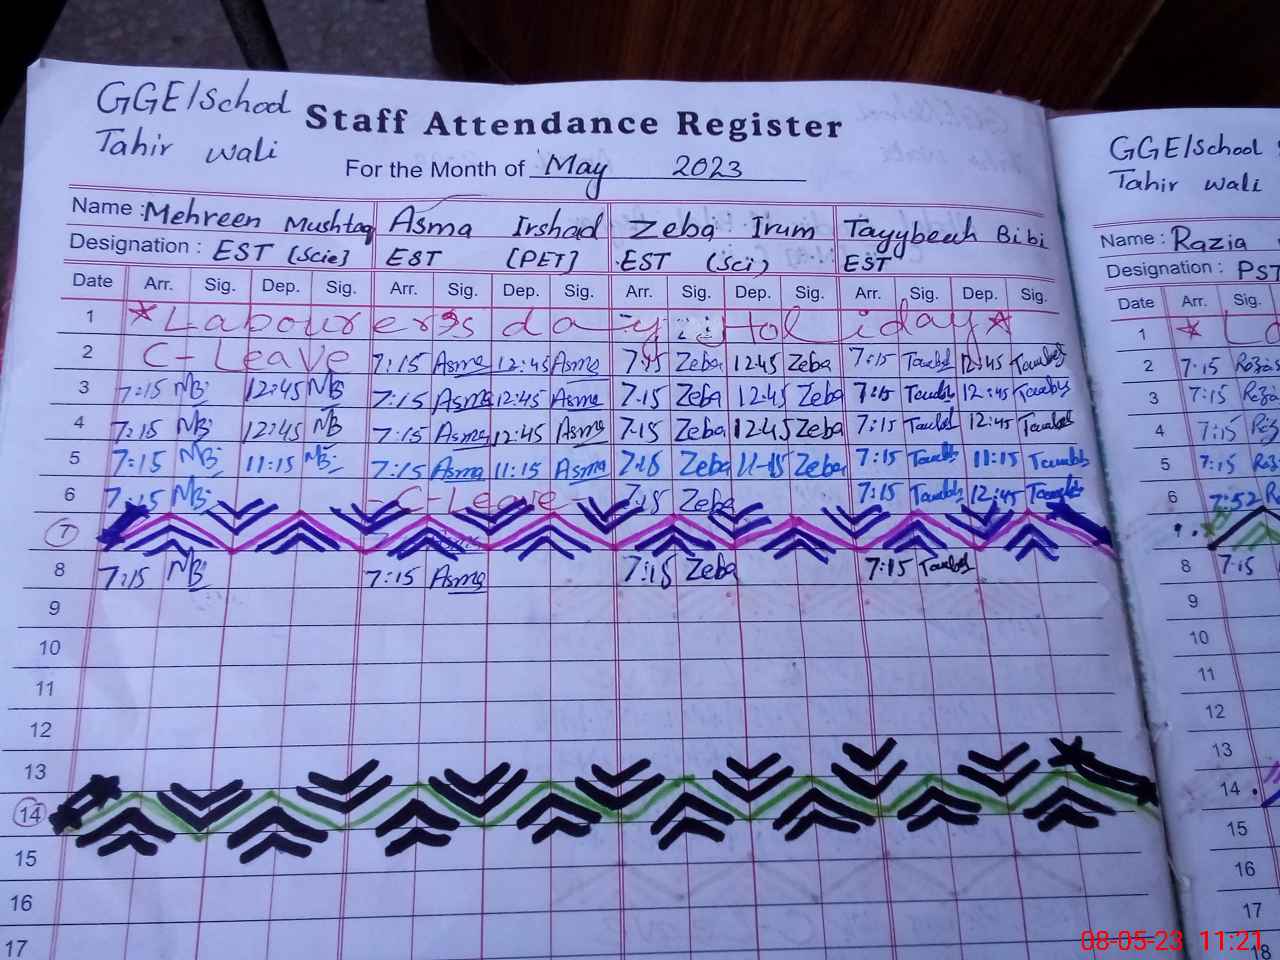 GGE/School
Tahir Wali
Staff Attendance Register
For the Month of May 2023
Name : Mehreen Mushtaq Asma Irshad Zeba Irum Tayybeah Bibi
Designation : EST [Scie] EST [PET] EST (Sci) EST
Date Arr. Sig. Dep. Sig. Arr. Sig. Dep. Sig. Arr. Sig. Dep. Sig. Arr. Sig. Dep. Sig.
1 * Labourer's day Holiday *
2 C-Leave 7:15 Asma 12:45 Asma 7:15 Zeba 12:45 Zeba 7:15 12:45
3 7:15 MB 12:45 MB 7:15 Asma 12:45 Asma 7:15 Zeba 12:45 Zeba 7:15 12:45
4 7:15 MB 12:45 MB 7:15 Asma 12:45 Asma 7:15 Zeba 12:45 Zeba 7:15 12:45
5 7:15 MB 11:15 MB 7:15 Asma 11:15 Asma 7:15 Zeba 11:15 Zeba 7:15 11:15
6 7:15 MB -C-Leave- 7:15 Zeba 7:15 12:45
7
8 7:15 MB 7:15 Asma 7:15 Zeba 7:15
9
10
11
12
13
14
15
16
17
GGE/School
Tahir Wali
Name : Razia
Designation : PST
Date Arr. Sig.
1 *
2 7:15
3 7:15
4 7:15
5 7:15
6 7:52
8 7:15
9
10
11
12
13
14
15
16
17
18
08-05-23 11:21